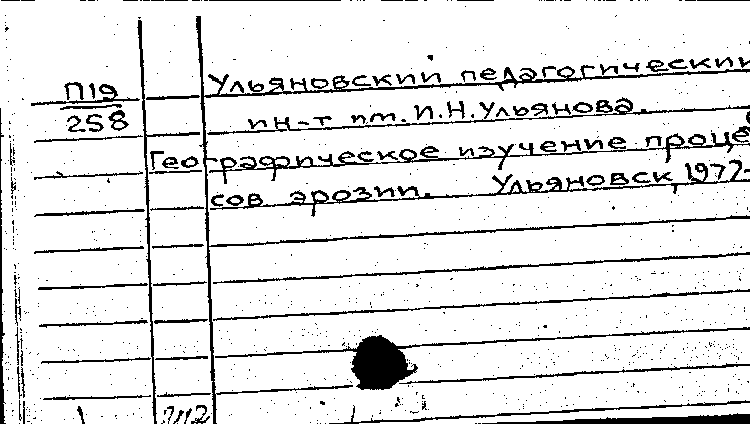 П19
258
Ульяновский педагогический
ин-т им. И.Н.Ульянова.
Географическое изучение проце
сов эрозии. Ульяновск, 1977-